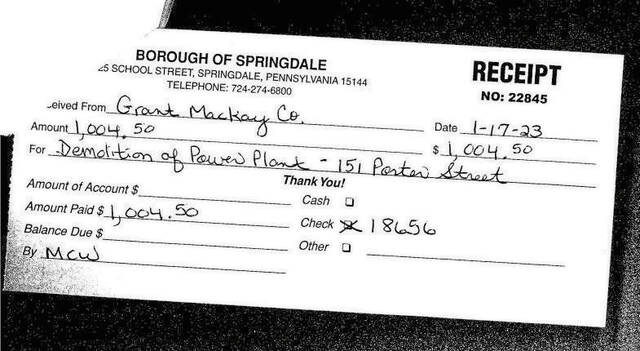 BOROUGH OF SPRINGDALE
25 SCHOOL STREET, SPRINGDALE, PENNSYLVANIA 15144
TELEPHONE: 724-274-6800
RECEIPT
NO: 22845
eived From Grant Mackay Co.
Date 1-17-23
Amount 1,004.50
$ 1,004.50
For Demolition of Power Plant - 151 Porter Street
Thank You!
Amount of Account $
Cash
Amount Paid $ 1,004.50
Check 18656
Balance Due $
Other
By MCW